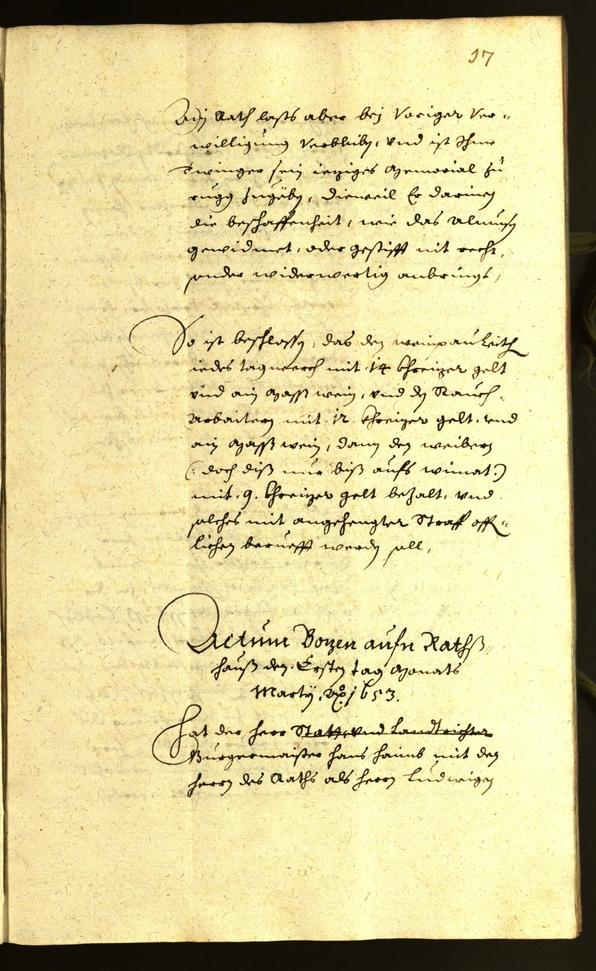 17
Ain Rath lasts aber bej voriger Ver=
willigung verbleibn, vnd ist Ihme
Twinger sein ieziges Memorial zu
rugg zugebn, dieweil Er darinen
die beschaffenheit, wie das Almusn
gewidmet, oder gestifft nit recht,
sonder widerwertig anbringt,
So ist beschlossn, das den weinpauleith
iedes tagwerch mit 14 Khreizer gelt
vnd ain Mass wein, und den Rauch=
Arbaitern mit 12 Khreizer gelt, vnd
ain Mass wein, dann den weibern
(: doch diß nur biß aufs wimat :)
mit 9. Khreizer gelt bezalt, vnd
solches mit angehengter Straff öff=
lichen beruefft werdn soll,
Actum Bozen aufn Rathß=
hauß den Ersten tag Monats
Martÿ, Ao 1653.
Hat der herr Statt vnd Landtrichter
Burgermaister hans haimb mit den
herrn des Raths als herrn Ludwigen